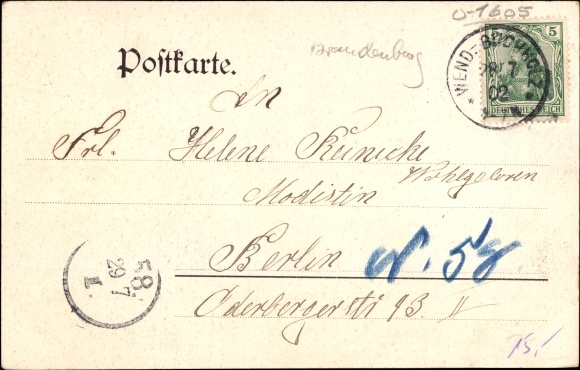 0-1605
Brandenburg
Postkarte.
5
WEND-BUCHHOLZ
28 7
02
DEUTSCHES REICH
An
Frl. Helene Kunicke
Wohlgeboren
Modistin
Berlin N. 58
Oderbergerstr 93 II
58.
29 7
15,-